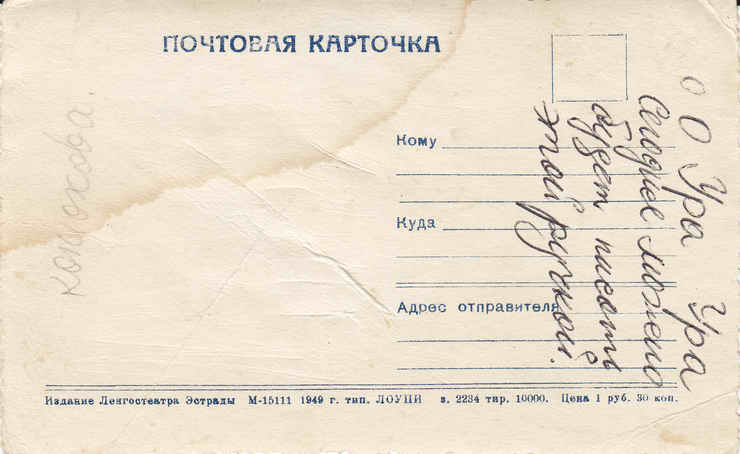 ПОЧТОВАЯ КАРТОЧКА
Кому
Куда
Адрес отправителя
Издание Ленгостеатра Эстрады М-15111 1949 г. тип. ЛОУПИ з. 2234 тир. 10000. Цена 1 руб. 30 коп.
О Ура Ура
сегодня можно
будет писать
этой ручкой!